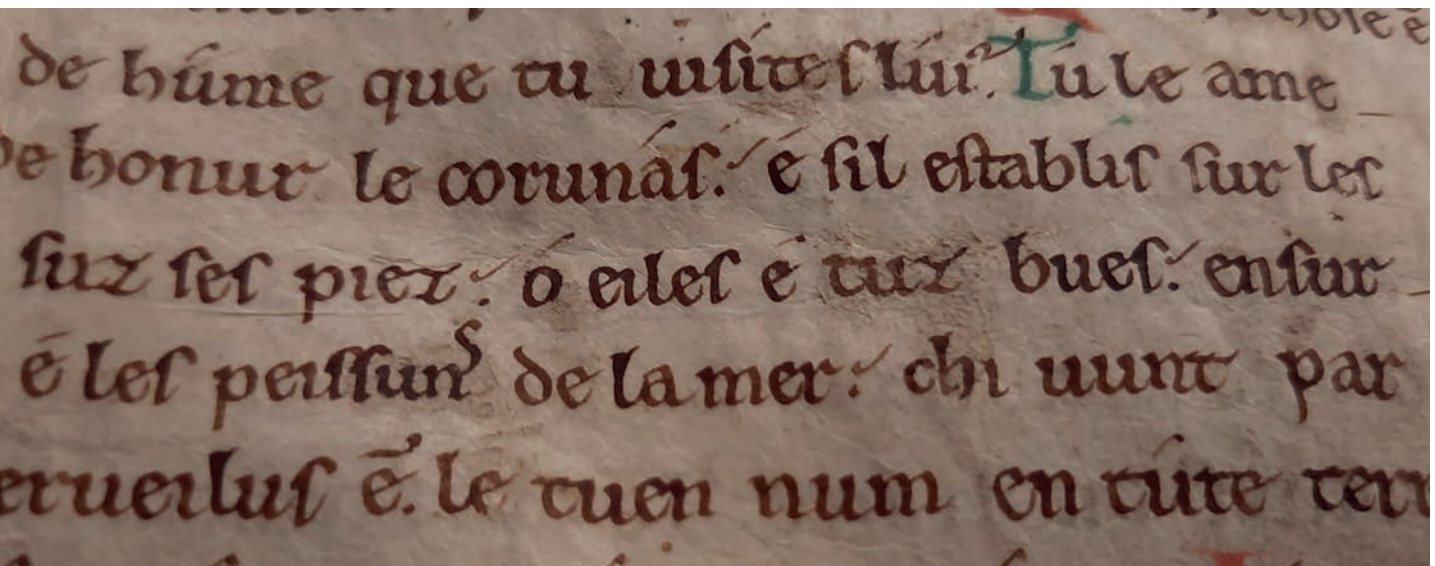 de húme que tu uisites lúi. Tú le ame
honur le corunás. é sil establis sur les
suz ses piez. ó eiles é tuz bues. ensur
é les peissuns de la mer. chi uunt par
erueilus ē. le tuen num en túte terr